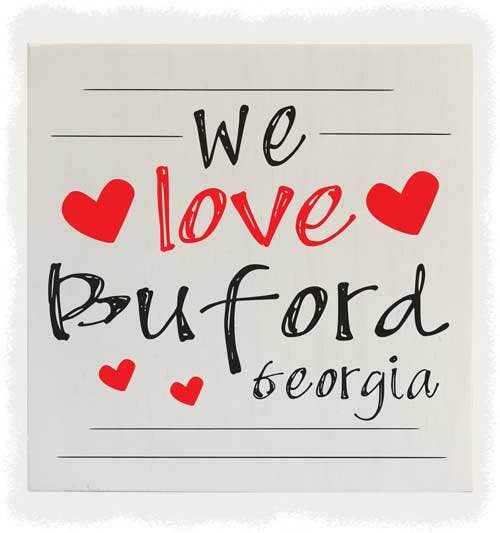 We
love
Buford
Georgia